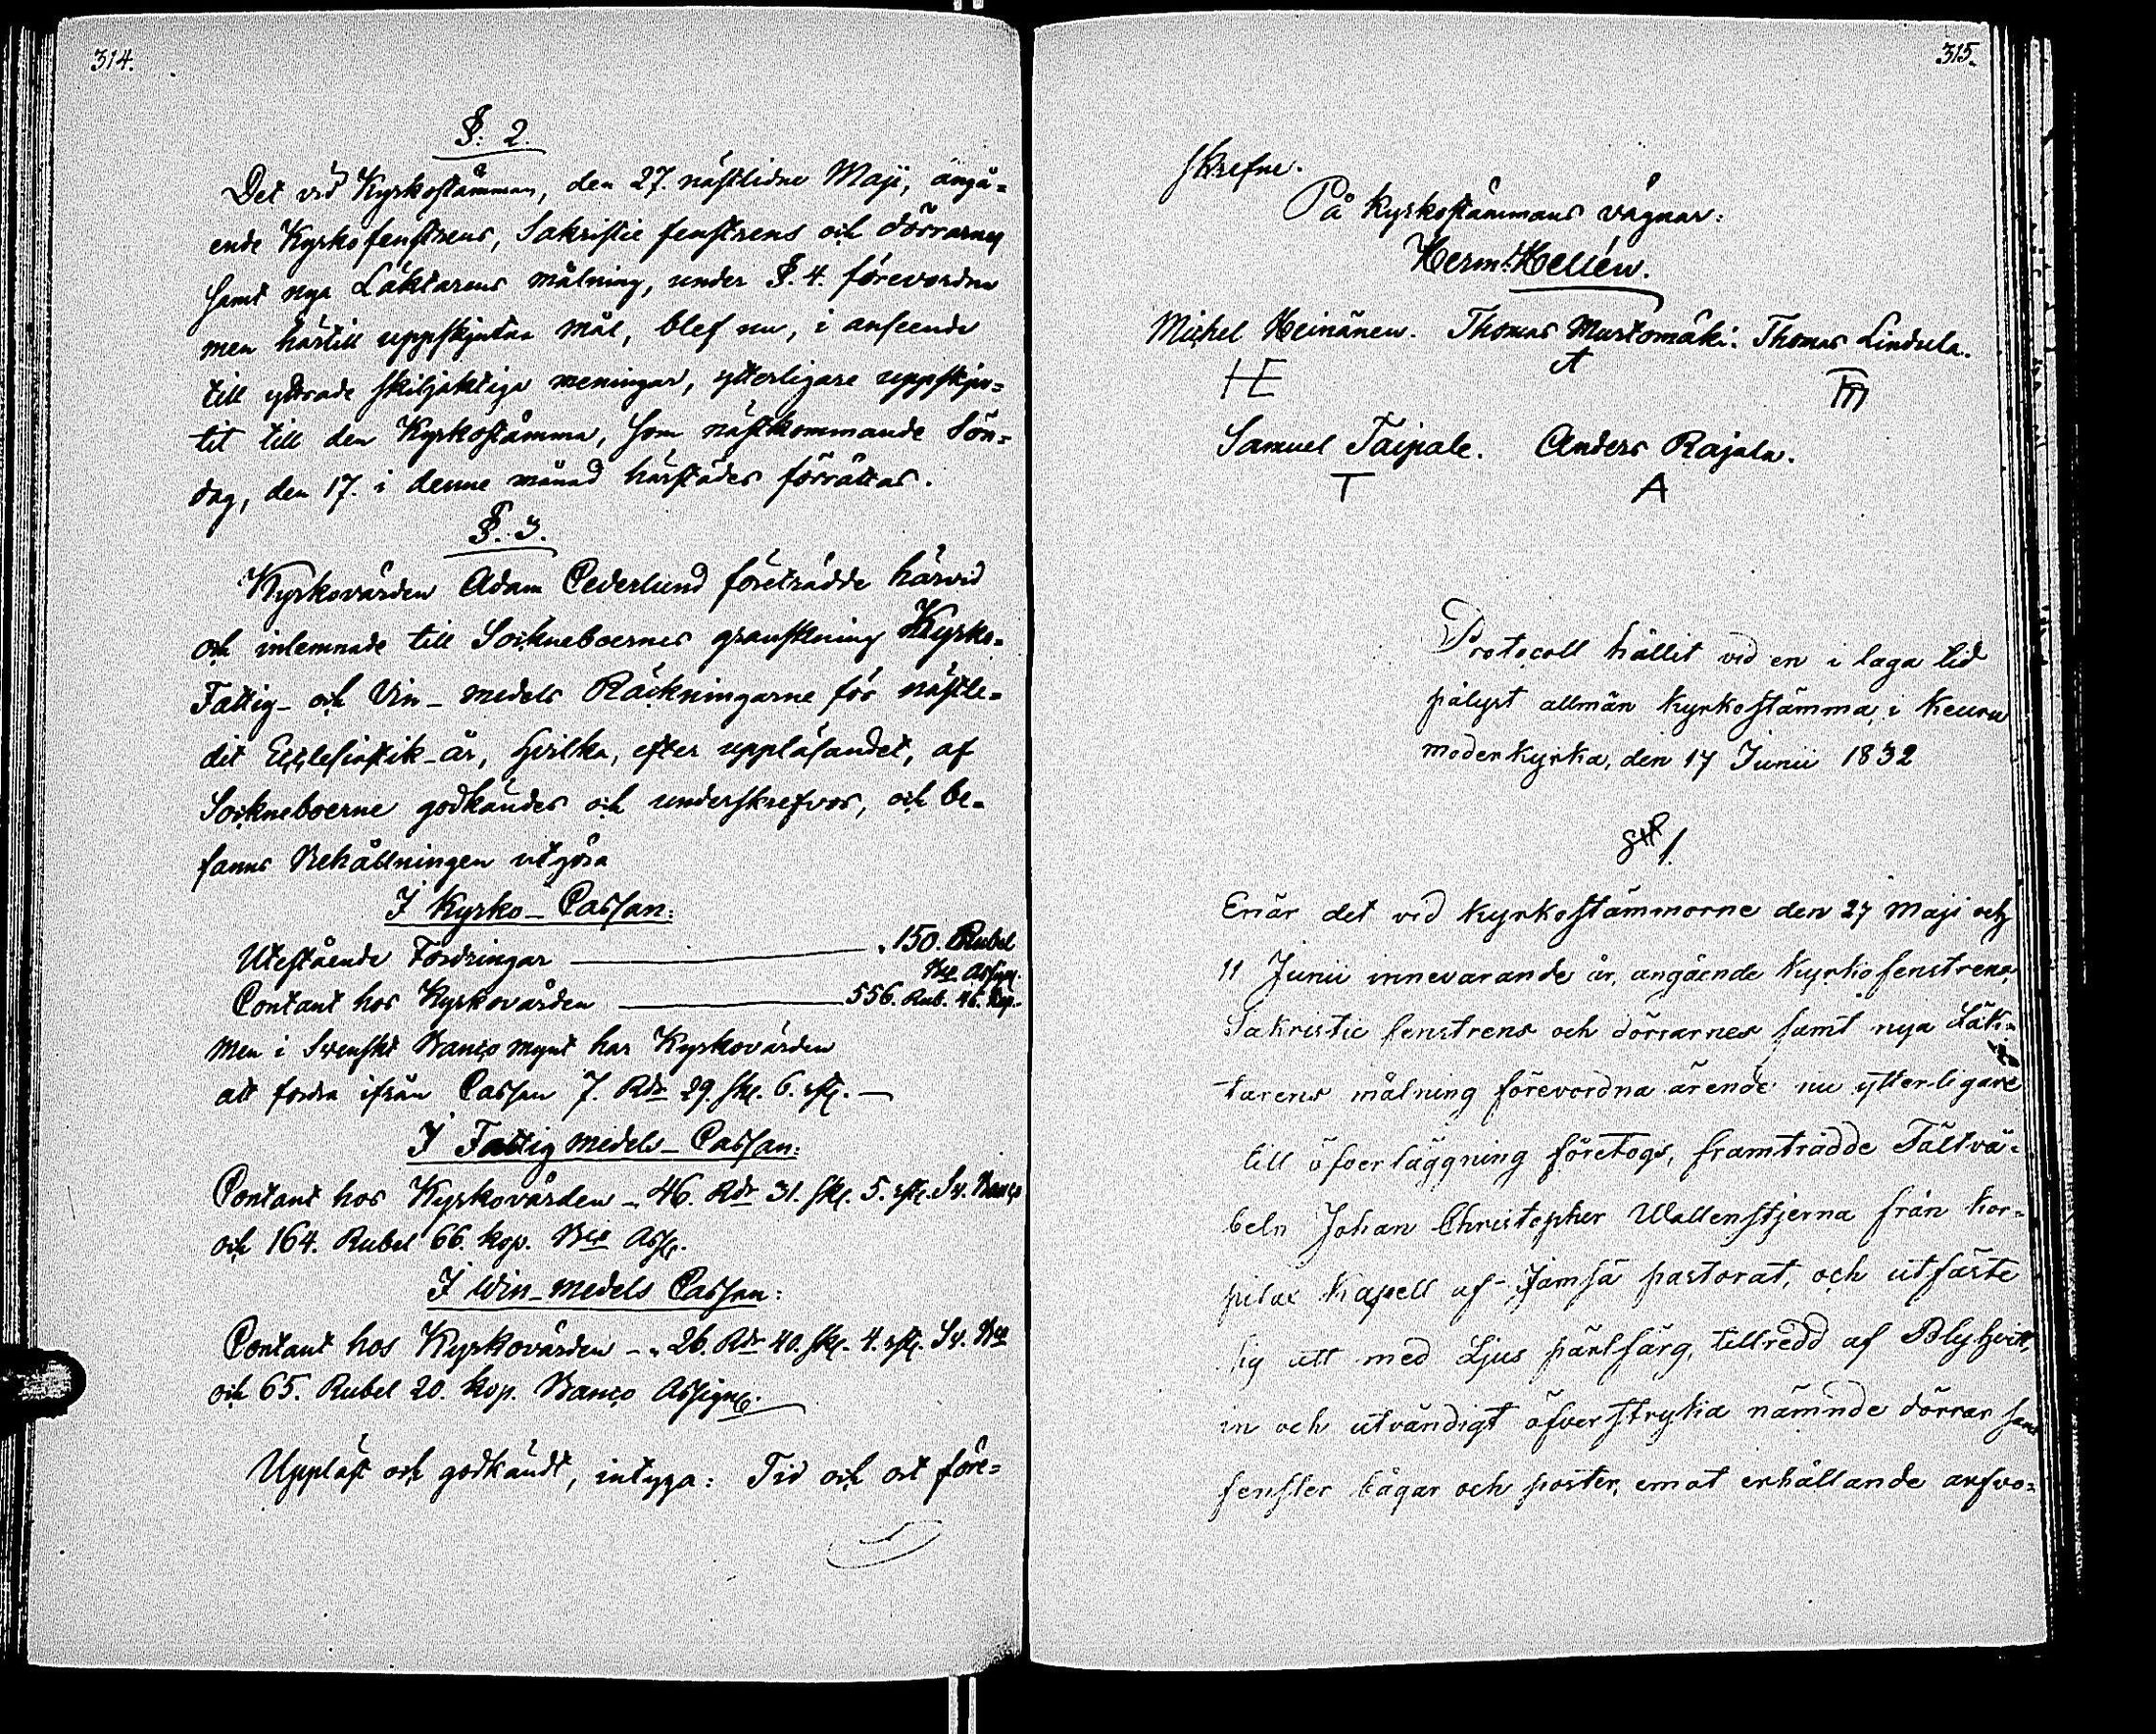 314.
§. 2.
Det vid Kyrkostämman, den 27. nästlidne Maji, angå=
ende Kyrkofenstrens, Sakristie fenstrens och dörrarnes
samt nya Läktarens målning, under §. 4. förevordna
men härtill uppskjutna mål, blef nu, i anseende
till yttrade skiljaktiga meningar, ytterligare uppskju=
tit till den Kyrkostämma, som nästkommande Sön=
dag, den 17. i denne månad härstädes förrättas.
§. 3.
Kyrkovärden Adam Cederlund företrädde härvid
och inlemnade till Sockneboernes granskning Kyrko=
Fattig- och Vin- medels Räckningarne för nästle=
dit Ecclesiastik-år, hvilka, efter uppläsandet, af
Sockneboerne godkändes och underskrefvos, och be=
fanns Behållningen utgöra
I Kyrko-Cassan:
Utestående Fordringar — „ 150. Rubel
Bco Assign.
Contant hos Kyrkovärden — 556. Rub. 46. kop.
Men i Svenskt Banco mynt har Kyrkovärden
att fordra ifrån Cassan 7. Rdr 29. sk. 6. rst. —
I Fattig medels-Cassan:
Contant hos Kyrkovärden - 46. Rdr 31. sk. 5. rst. Sv. Banco
och 164. Rubel 66. kop. Bco Ass.
I Win-medels Cassan:
Contant hos Kyrkovärden - „ 26. Rdr 40. sk. 4. rst. Sv. Bco
och 65. Rubel 20. kop. Banco Assign.
Uppläst och godkändt, intyga: Tid och ort före=
315.
skrefne.
På Kyrkostämmans vägnar:
Herm: Hellén.
Michel Heinänen. Thomas Mustomäki. Thomas Lindula.
HE A TM
Samuel Taipale. Anders Rajala.
T A
Protocoll hållit vid en i laga tid
pålyst allmän Kyrkostämma, i Keuru
moderkyrka, den 17 Junii 1832
§ 1.
Enär det vid Kyrkostämmorne den 27 Maji och
11 Junii innevarande år, angående Kyrkofenstrens,
Sakristie fenstrens och dörrarnes samt nya Läk=
tarens målning förevordna ärende nu ytterligare
till öfverläggning företogs, framträdde Fältvä=
beln Johan Christopher Wallenstjerna från Kor=
pilax Kapell af Jämsä pastorat, och utfäste
sig att med Ljus pärlfärg, tillredd af Blyhvitt,
in och utvändigt öfverstryka nämnde dörrar samt
fenster bågar och poster, emot erhållande arfvo=